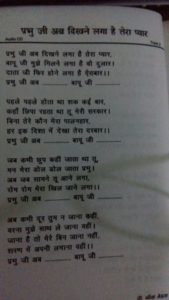 प्रभु जी अब दिखने लगा है तेरा प्यार
Audio CD
प्रभु जी अब दिखने लगा है तेरा प्यार,
बापू जी मुझे मिलने लगा है वो दुलार।
दाता जी फिर होने लगा है ऐतबार।।
प्रभु जी अब ........... बापू जी ...........
पहले पहले होता था शक कई बार,
कहीं छिपा रहता था तू मेरी सरकार।
बिना तेरे कौन मेरा पालनहार,
हर इक दिशा में देखा तेरा दरबार।।
प्रभु जी अब ........... बापू जी ...........
जब कभी छुप कहीं जाता था तू,
मन मेरा डोल डोल जाता प्रभु।
अब जब सामने तू आने लगा,
रोम रोम मेरा खिल जाने लगा।।
प्रभु जी अब ........... बापू जी ...........
अब कभी दूर तुम न जाना कहीं,
वरना मुझे साथ ले जाना वहीं।
जाना है तो मेरे बिन जाना नहीं,
शरण में अपनी लगाना वहीं।।
प्रभु जी अब ........... बापू जी ...........